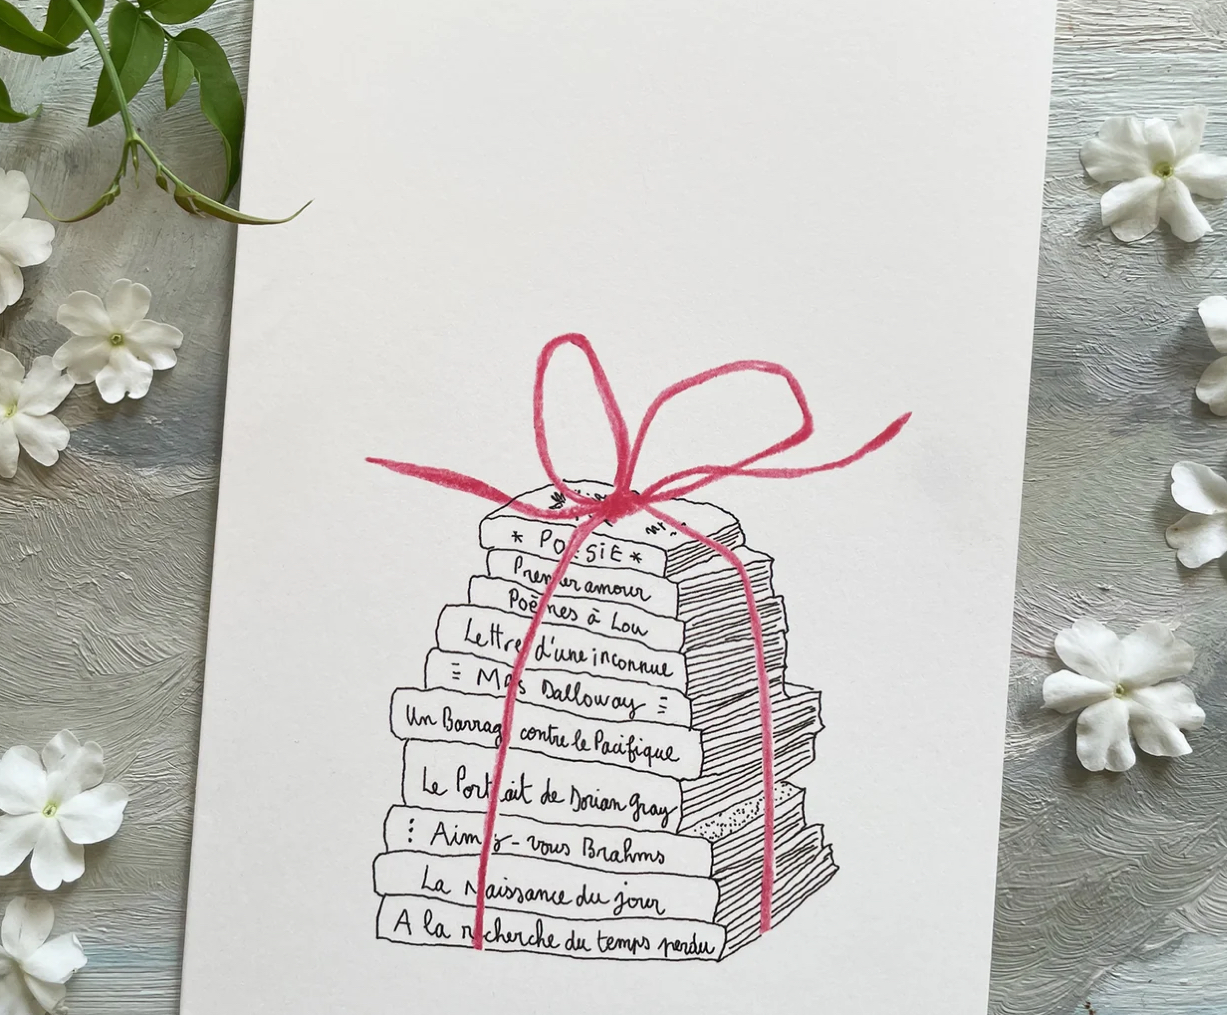 * POESiE *
Premier amour
Poèmes à Lou
Lettre d'une inconnue
Mrs Dalloway
Un Barrage contre le Pacifique
Le Portrait de Dorian Gray
Aimez-vous Brahms
La Naissance du jour
A la recherche du temps perdu